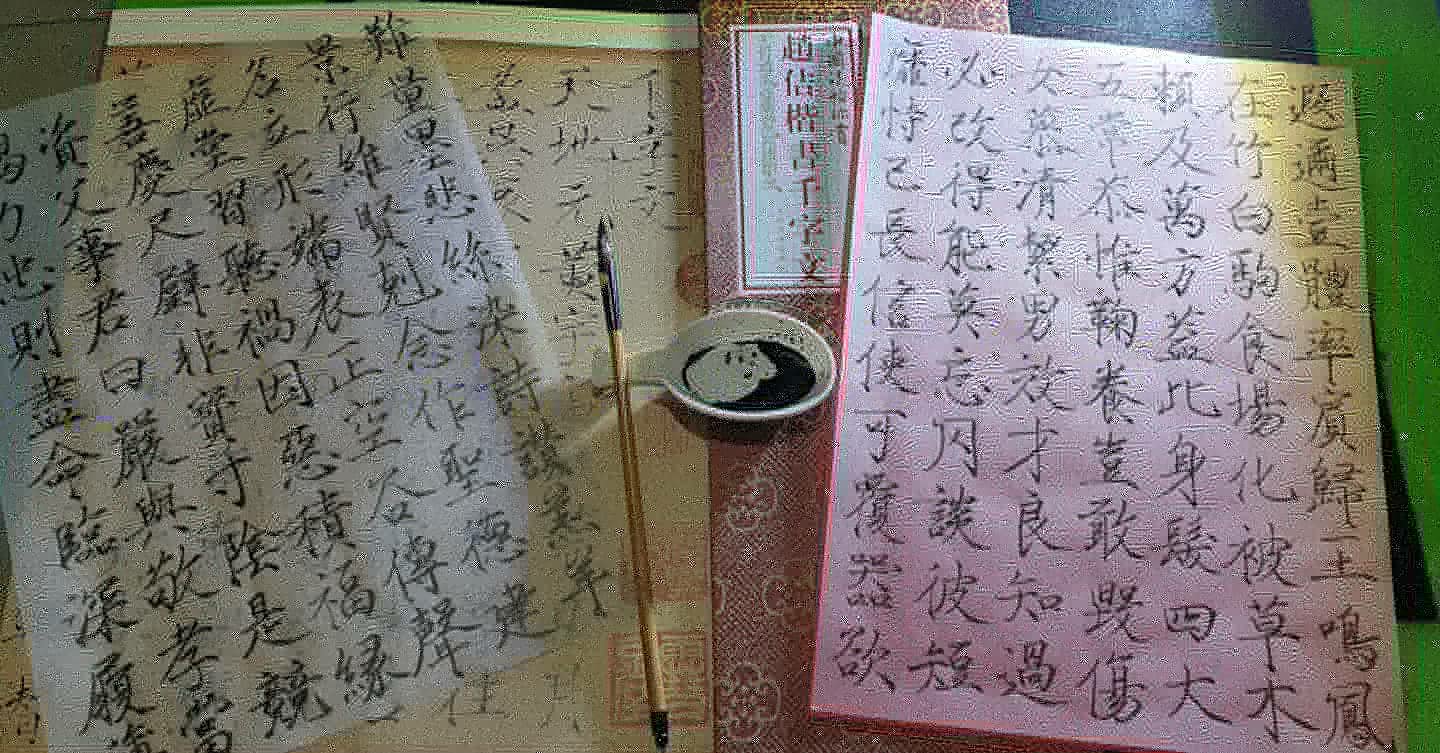 遐邇壹體率賓歸王鳴鳳
在竹白駒食場化被草木
賴及萬方蓋此身髮四大
五常恭惟鞠養豈敢毀傷
女慕清絜男效才良知過
必改得能莫忘罔談彼短
靡恃己長信使可覆器欲
趙佶楷書千字文
難量墨悲絲染詩讚羔羊
景行維賢剋念作聖德建
名立形端表正空谷傳聲
虛堂習聽禍因惡積福緣
善慶尺璧非寶寸陰是競
資父事君曰嚴與敬孝當
竭力忠則盡命臨深履